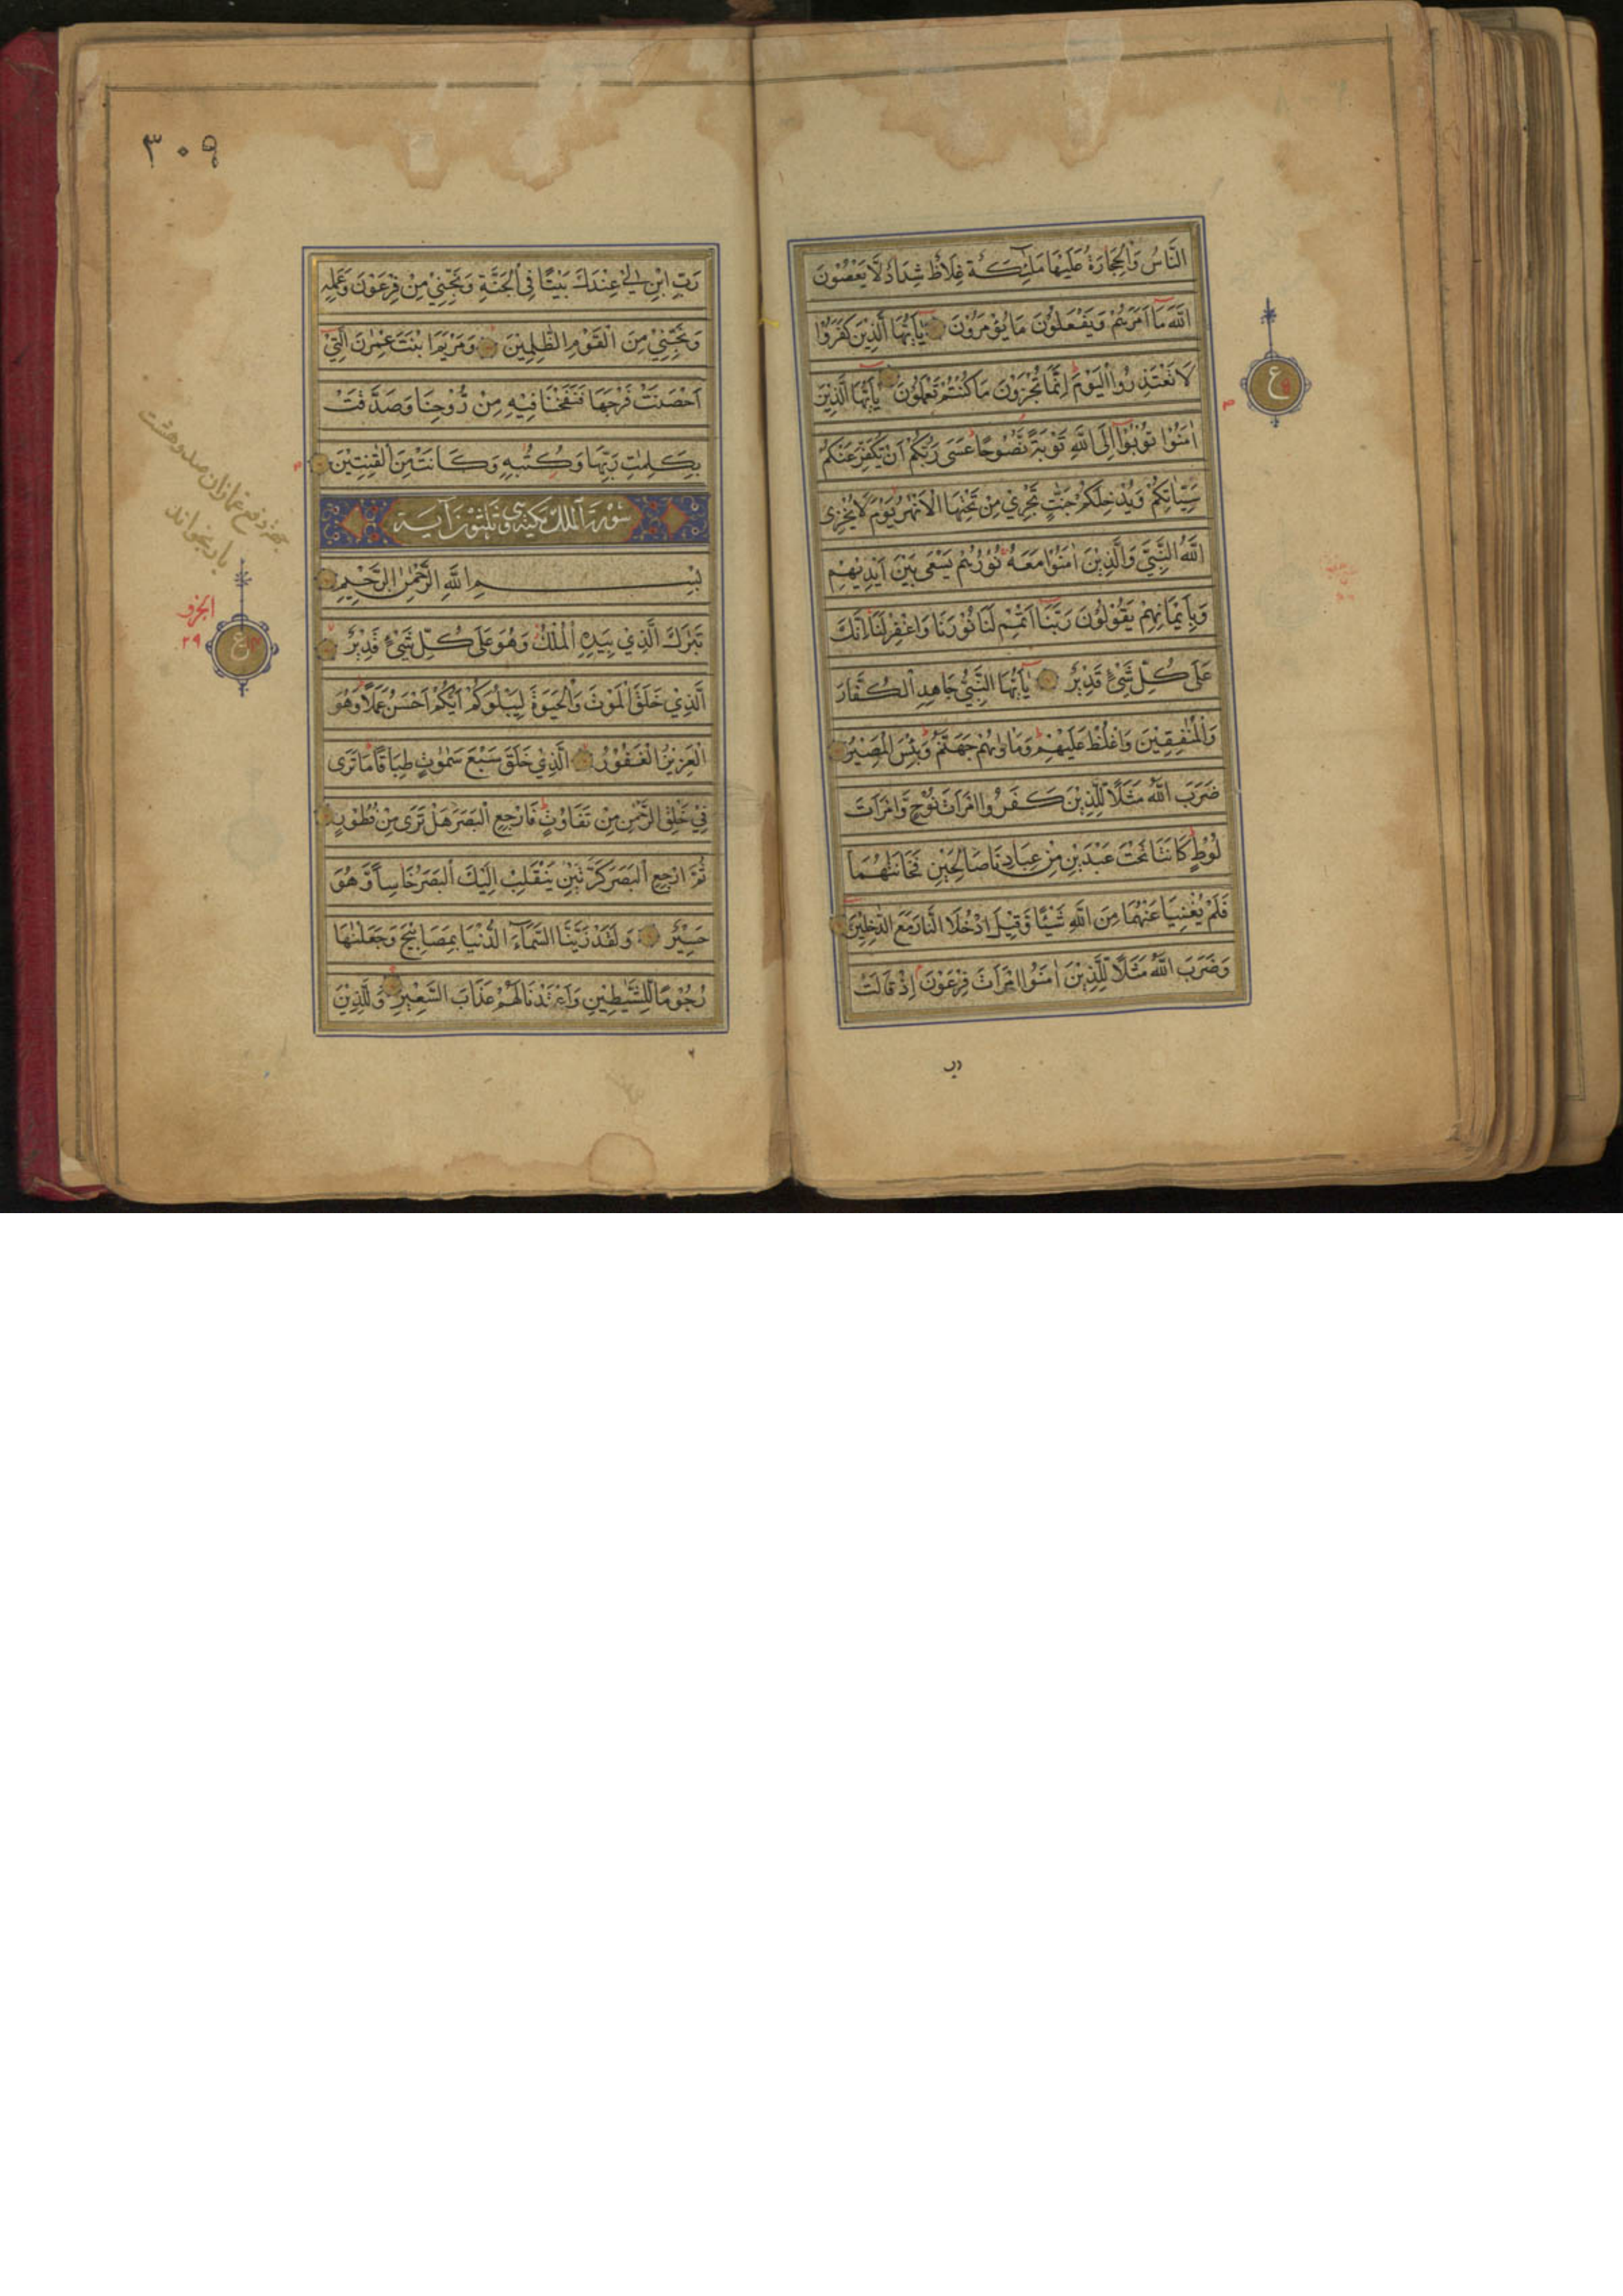 النَّاسُ وَالْحِجَارَةُ عَلَيْهَا مَلٰٓئِكَةٌ غِلَاظٌ شِدَادٌ لَّا يَعْصُوْنَ
اللّٰهَ مَآ اَمَرَهُمْ وَيَفْعَلُوْنَ مَا يُؤْمَرُوْنَ يٰٓاَيُّهَا الَّذِيْنَ كَفَرُوْا
لَا تَعْتَذِرُوا الْيَوْمَ اِنَّمَا تُجْزَوْنَ مَا كُنْتُمْ تَعْمَلُوْنَ يٰٓاَيُّهَا الَّذِيْنَ
اٰمَنُوْا تُوْبُوْٓا اِلَى اللّٰهِ تَوْبَةً نَّصُوْحًا عَسٰى رَبُّكُمْ اَنْ يُّكَفِّرَ عَنْكُمْ
سَيِّاٰتِكُمْ وَيُدْخِلَكُمْ جَنّٰتٍ تَجْرِيْ مِنْ تَحْتِهَا الْاَنْهٰرُ يَوْمَ لَا يُخْزِى
اللّٰهُ النَّبِيَّ وَالَّذِيْنَ اٰمَنُوْا مَعَهٗ نُوْرُهُمْ يَسْعٰى بَيْنَ اَيْدِيْهِمْ
وَبِاَيْمَانِهِمْ يَقُوْلُوْنَ رَبَّنَآ اَتْمِمْ لَنَا نُوْرَنَا وَاغْفِرْ لَنَا اِنَّكَ
عَلٰى كُلِّ شَيْءٍ قَدِيْرٌ يٰٓاَيُّهَا النَّبِيُّ جَاهِدِ الْكُفَّارَ
وَالْمُنٰفِقِيْنَ وَاغْلُظْ عَلَيْهِمْ وَمَاْوٰىهُمْ جَهَنَّمُ وَبِئْسَ الْمَصِيْرُ
ضَرَبَ اللّٰهُ مَثَلًا لِّلَّذِيْنَ كَفَرُوا امْرَاَتَ نُوْحٍ وَّامْرَاَتَ
لُوْطٍ كَانَتَا تَحْتَ عَبْدَيْنِ مِنْ عِبَادِنَا صَالِحَيْنِ فَخَانَتٰهُمَا
فَلَمْ يُغْنِيَا عَنْهُمَا مِنَ اللّٰهِ شَيْئًا وَّقِيْلَ ادْخُلَا النَّارَ مَعَ الدّٰخِلِيْنَ
وَضَرَبَ اللّٰهُ مَثَلًا لِّلَّذِيْنَ اٰمَنُوا امْرَاَتَ فِرْعَوْنَ اِذْ قَالَتْ
رب
ع
٣٠٩
رَبِّ ابْنِ لِيْ عِنْدَكَ بَيْتًا فِى الْجَنَّةِ وَنَجِّنِيْ مِنْ فِرْعَوْنَ وَعَمَلِهٖ
وَنَجِّنِيْ مِنَ الْقَوْمِ الظّٰلِمِيْنَ وَمَرْيَمَ ابْنَتَ عِمْرٰنَ الَّتِيْٓ
اَحْصَنَتْ فَرْجَهَا فَنَفَخْنَا فِيْهِ مِنْ رُّوْحِنَا وَصَدَّقَتْ
بِكَلِمٰتِ رَبِّهَا وَكُتُبِهٖ وَكَانَتْ مِنَ الْقٰنِتِيْنَ
سُوْرَةُ الْمُلْكِ مَكِّيَّةٌ وَهِيَ ثَلٰثُوْنَ آيَة
بِسْمِ اللّٰهِ الرَّحْمٰنِ الرَّحِيْمِ
تَبٰرَكَ الَّذِيْ بِيَدِهِ الْمُلْكُ وَهُوَ عَلٰى كُلِّ شَيْءٍ قَدِيْرٌ
الَّذِيْ خَلَقَ الْمَوْتَ وَالْحَيٰوةَ لِيَبْلُوَكُمْ اَيُّكُمْ اَحْسَنُ عَمَلًا وَهُوَ
الْعَزِيْزُ الْغَفُوْرُ الَّذِيْ خَلَقَ سَبْعَ سَمٰوٰتٍ طِبَاقًا مَا تَرٰى
فِيْ خَلْقِ الرَّحْمٰنِ مِنْ تَفَاوُتٍ فَارْجِعِ الْبَصَرَ هَلْ تَرٰى مِنْ فُطُوْرٍ
ثُمَّ ارْجِعِ الْبَصَرَ كَرَّتَيْنِ يَنْقَلِبْ اِلَيْكَ الْبَصَرُ خَاسِئًا وَّهُوَ
حَسِيْرٌ وَلَقَدْ زَيَّنَّا السَّمَآءَ الدُّنْيَا بِمَصَابِيْحَ وَجَعَلْنٰهَا
رُجُوْمًا لِّلشَّيٰطِيْنِ وَاَعْتَدْنَا لَهُمْ عَذَابَ السَّعِيْرِ وَلِلَّذِيْنَ
بجهة دفع غمازان صد و هشت
بار بخواند
الجزو
٢٩
ع